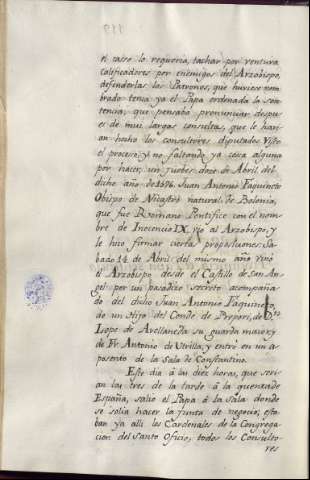 119
el casso lo requeria, tachar por ventura
calificadores por enemigos del Arzobispo,
defenderlas los Patronos, que huviese nom-
brado tenia ya el Papa ordenada la sen-
tencia; que pensaba pronunciar despu-
es de mui largas consultas, que le havi-
an hecho los consultores diputados Visto
el proceso, y no faltando ya cosa alguna
por hacer, un jueves doce de Abril del
dicho año de 1576. Juan Antonio Faquineto
Obispo de Nicastro natural de Bolonia,
que fue Romano Pontifice con el nom-
bre de Inocencio IX, al Arzobispo, y
le hizo firmar cierta proposiciones: Sa-
bado 14 de Abril del mismo año vino
el Arzobispo desde el Castillo de San An-
gel por un pasadizo secreto acompaña-
do del dicho Juan Antonio Faquineto,
de un Hijo del Conde de de Dn.
Lope de Avellaneda su guarda maior, y
de Fr. Antonio de Utrilla, y entrò en un a-
posento de la Sala de Constantino.
Este dia à las diez horas, que seri-
an las tres de la tarde à la quenta de
España, saliò el Papa à la Sala donde
se solia hacer la junta de negocio; esta-
ban ya alli los Cardenales de la Congrega-
cion del Santo Oficio, todos los Consulto-
res